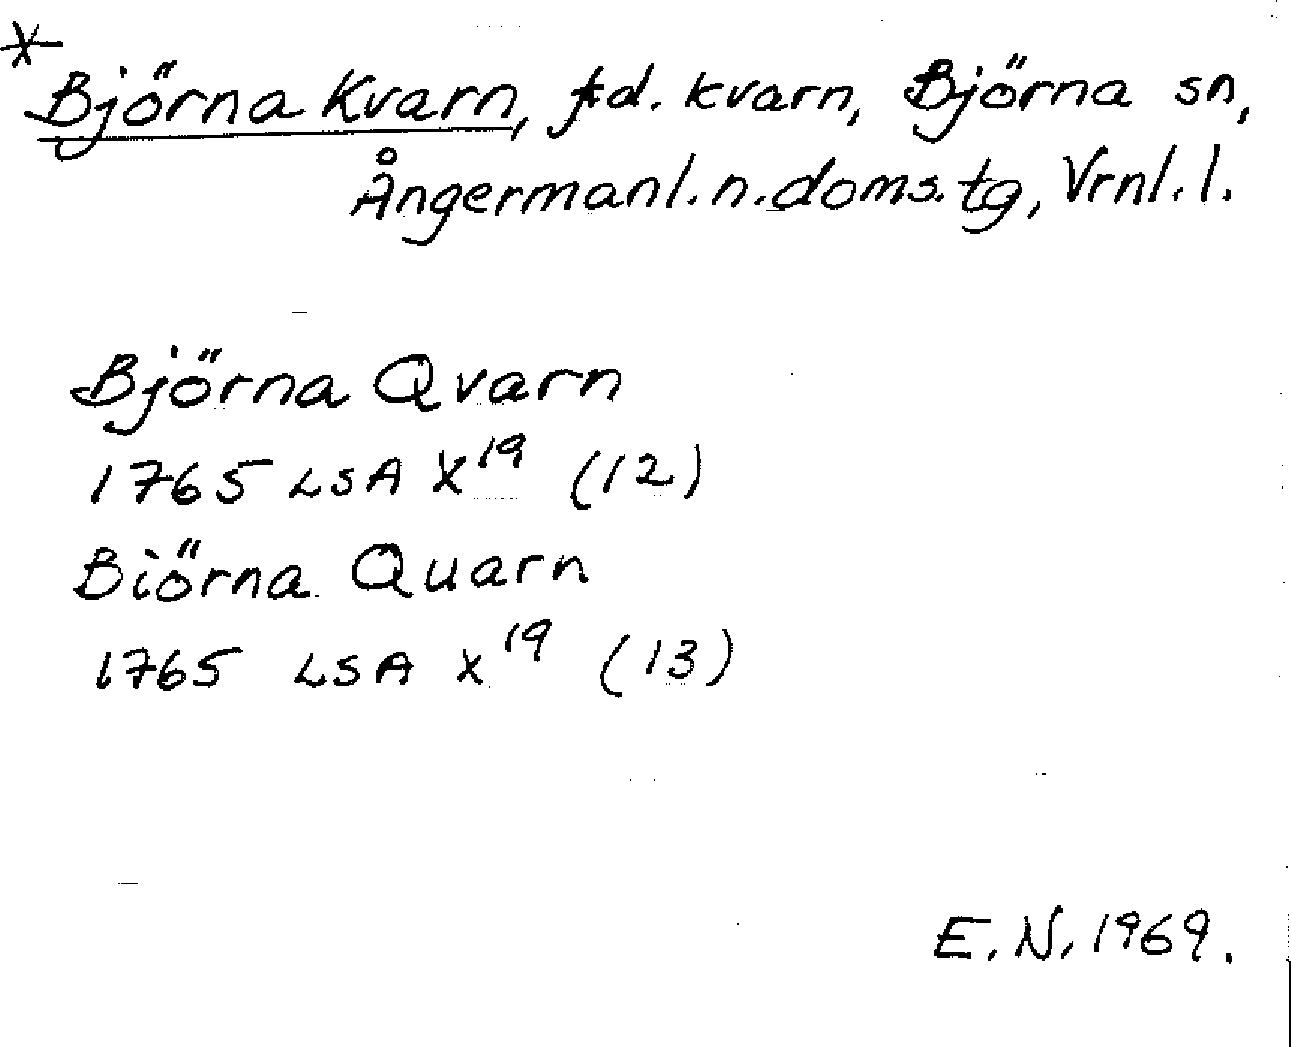 * Björna Kvarn, f.d. kvarn, Björna sn,
Ångermanl. n. doms. tg, Vrnl. l.
Björna Qvarn
1765 LSA X¹⁹ (12)
Biörna Quarn
1765 LSA X¹⁹ (13)
E. N. 1969.